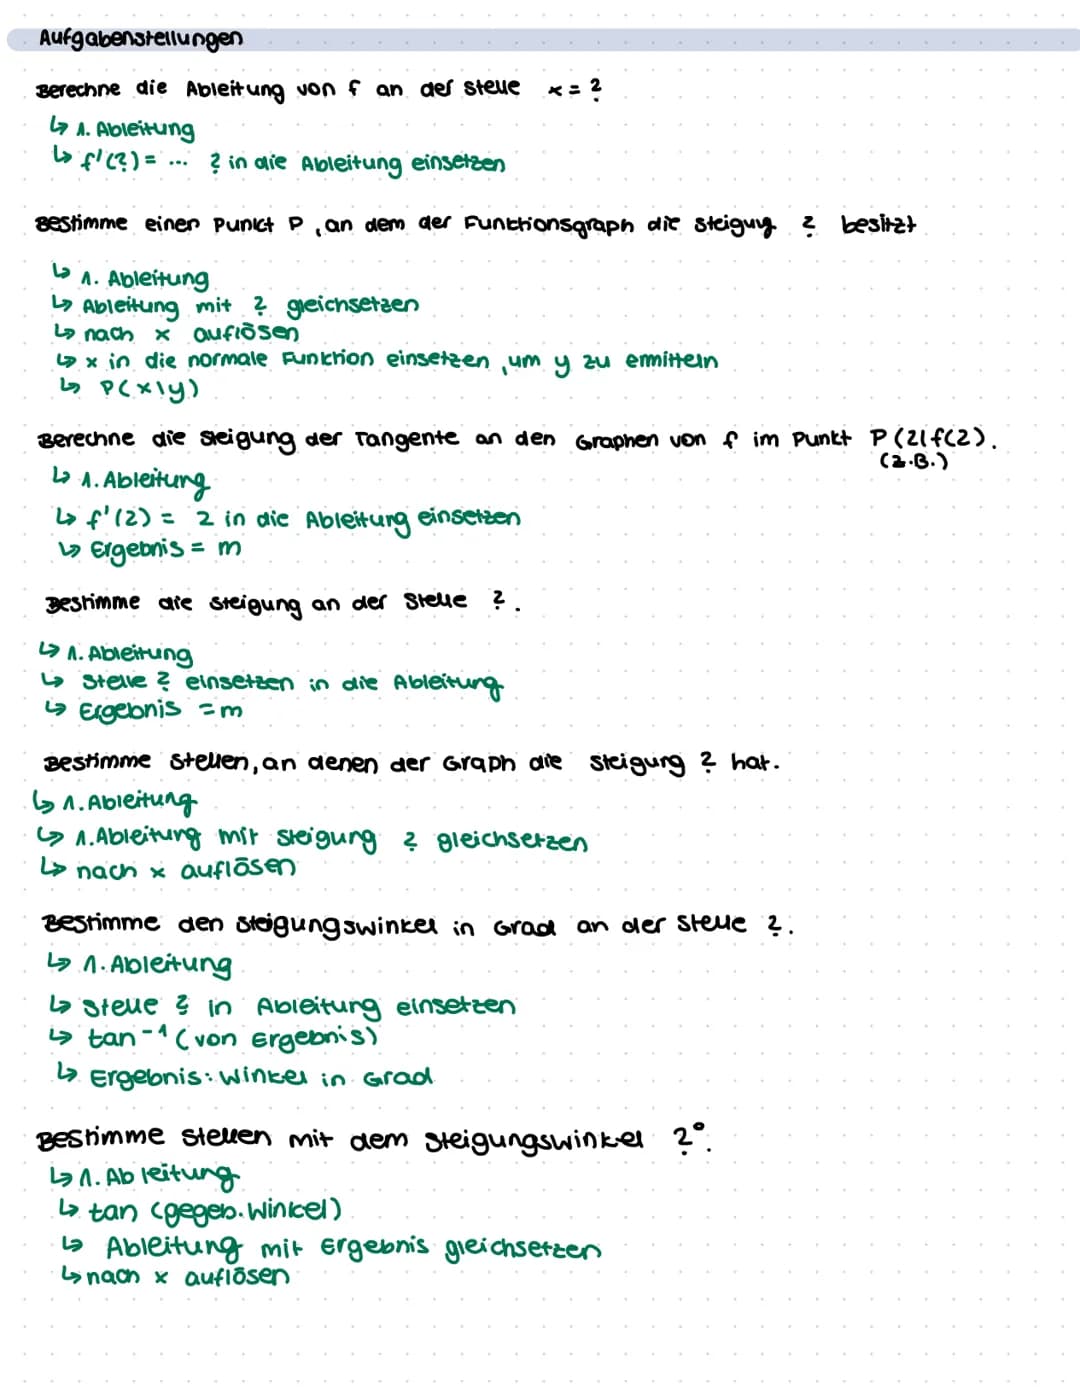 Aufgabenstellungen
Berechne die Ableitung von f an der Stelle x = ?
↳ 1. Ableitung
↳ f'(?) = ... ? in die Ableitung einsetzen
Bestimme einen Punkt P, an dem der Funktionsgraph die Steiguug ? besitzt
↳ 1. Ableitung
↳ Ableitung mit ? gleichsetzen
↳ nach x auflösen
↳ x in die normale Funktion einsetzen, um y zu ermitteln
↳ P(x|y)
Berechne die Steigung der Tangente an den Graphen von f im Punkt P(2|f(2).
(z.B.)
↳ 1. Ableitung
↳ f'(2) = 2 in die Ableitung einsetzen
↳ Ergebnis = m
Bestimme die Steigung an der Stelle ?.
↳ 1. Ableitung
↳ Stelle ? einsetzen in die Ableitung
↳ Ergebnis = m
Bestimme Stellen, an denen der Graph die Steigung ? hat.
↳ 1. Ableitung
↳ 1. Ableitung mit Steigung ? gleichsetzen
↳ nach x auflösen
Bestimme den Steigungswinkel in Grad an der Stelle ?.
↳ 1. Ableitung
↳ Stelle ? in Ableitung einsetzen
↳ tan⁻¹ (von Ergebnis)
↳ Ergebnis: Winkel in Grad
Bestimme Stellen mit dem Steigungswinkel ?°.
↳ 1. Ableitung
↳ tan (gegeb. Winkel)
↳ Ableitung mit Ergebnis gleichsetzen
↳ nach x auflösen